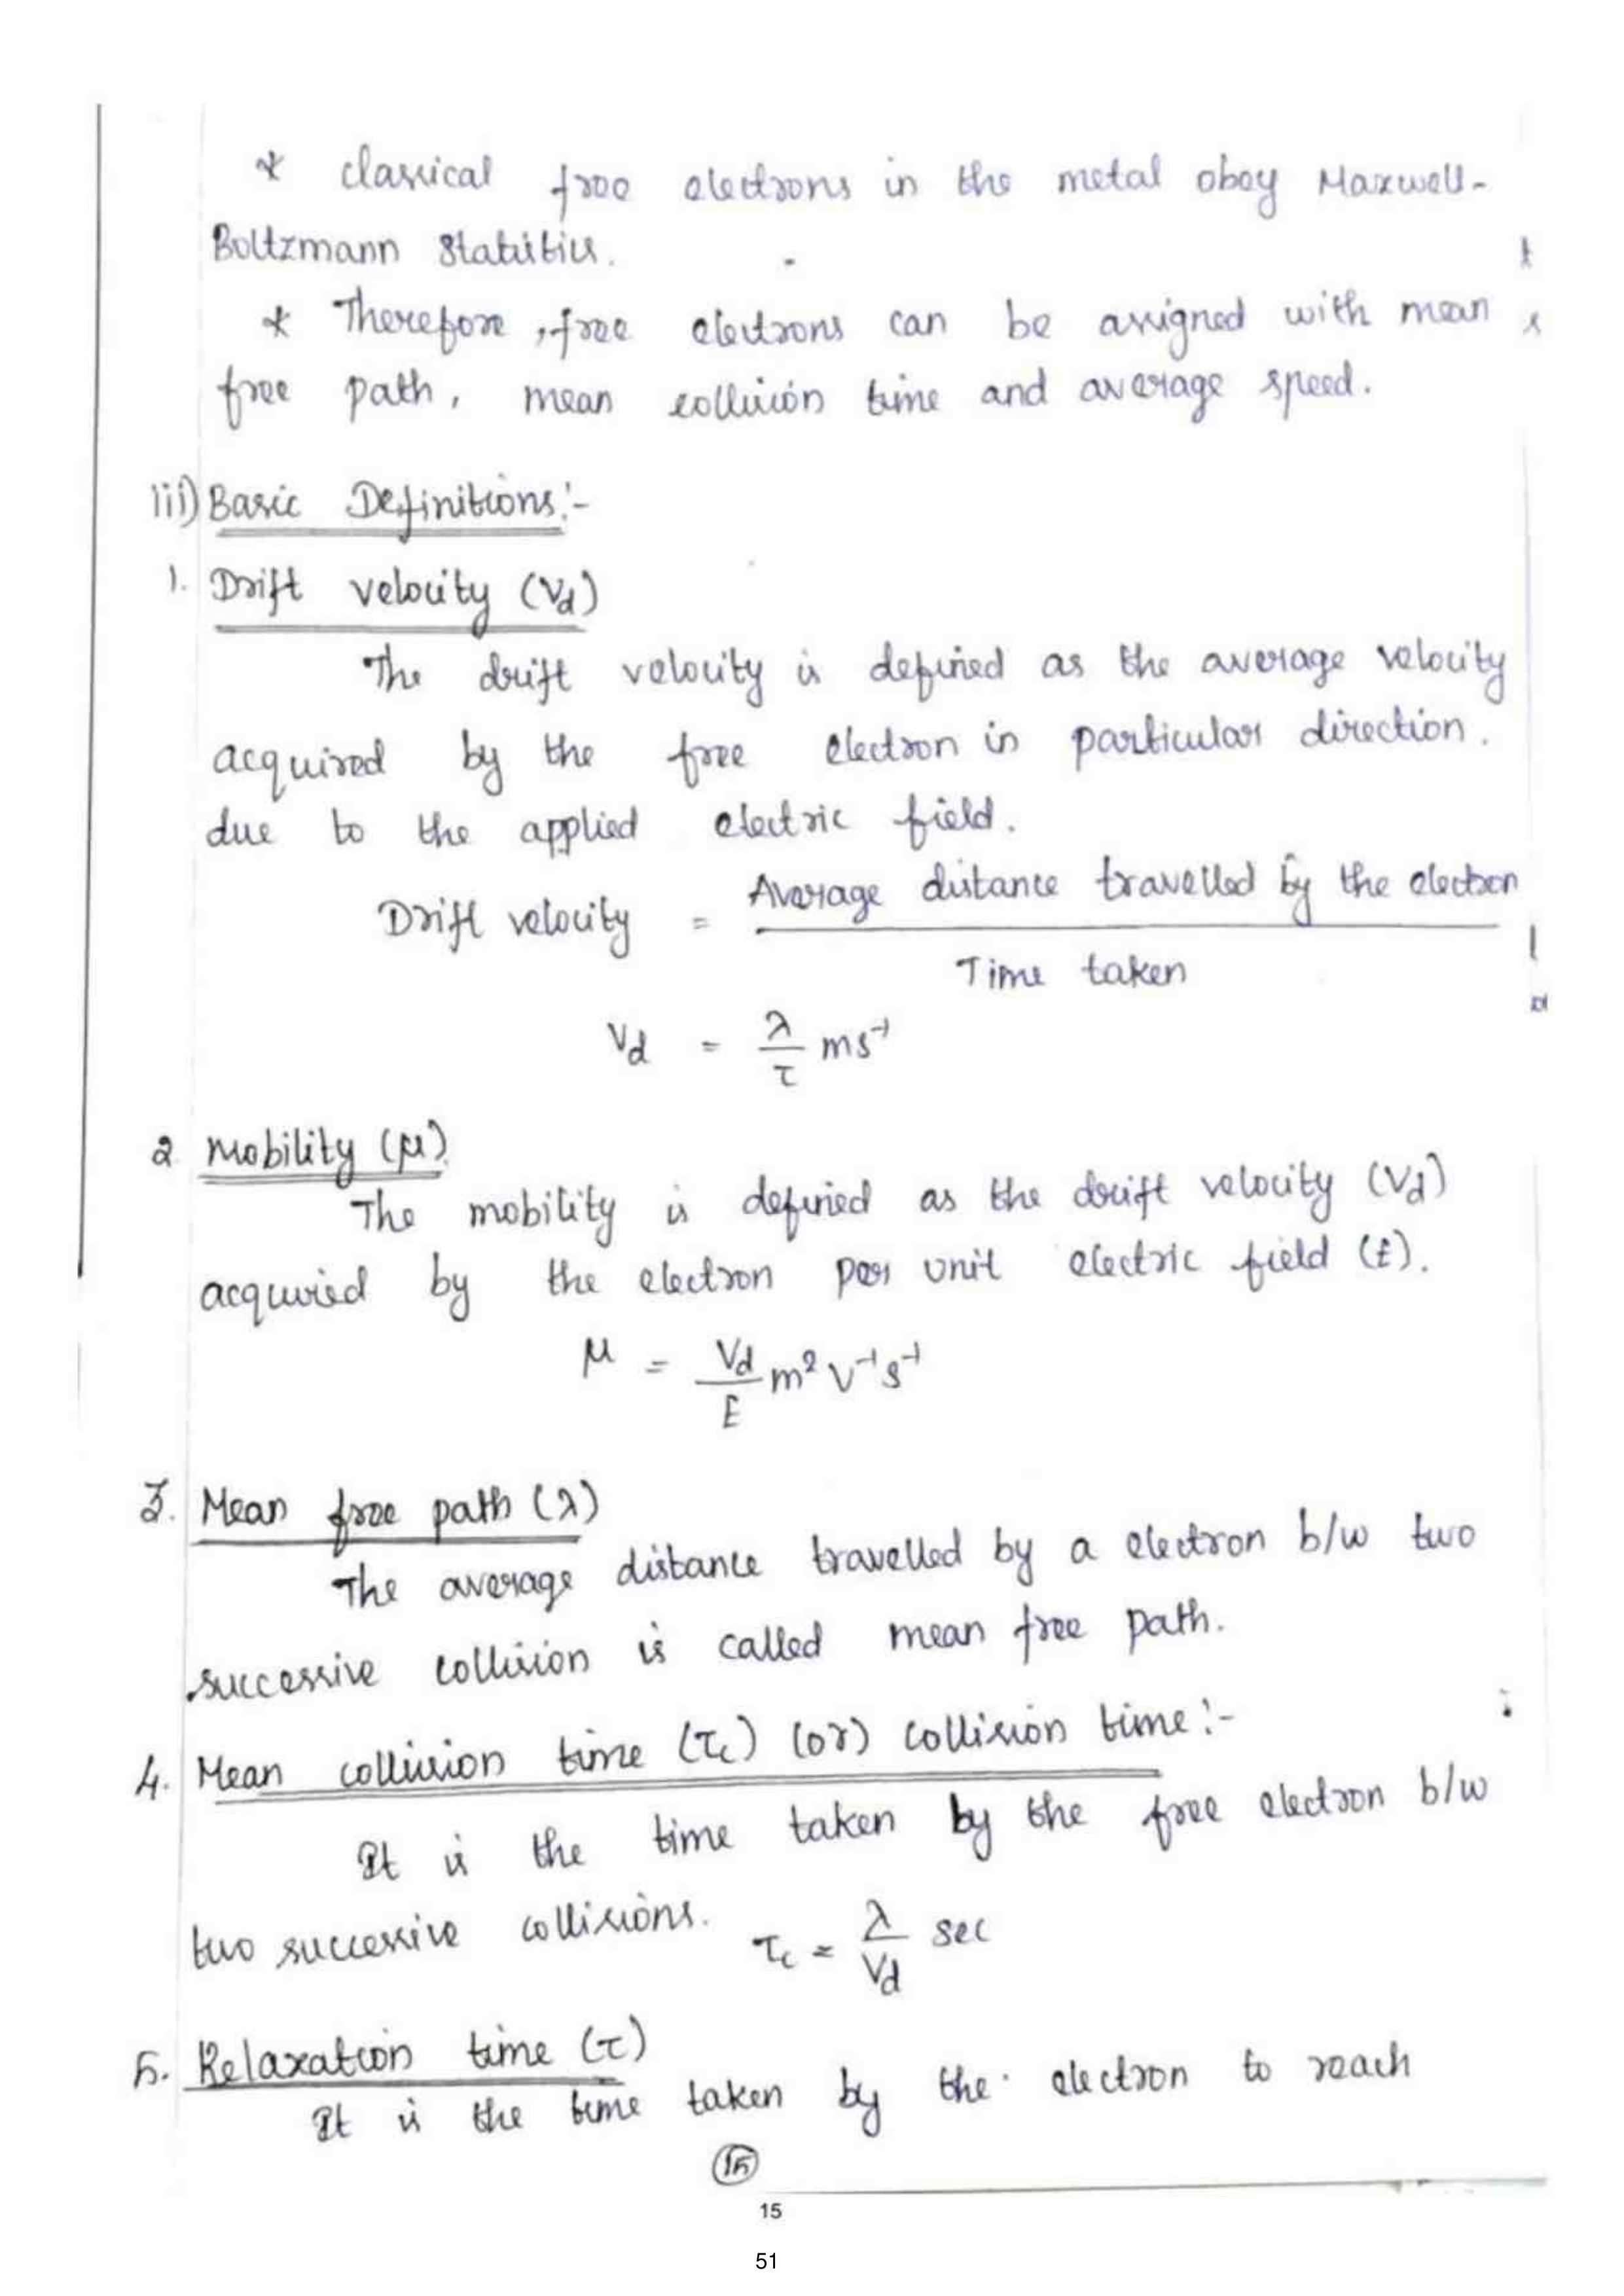 * classical free electrons in the metal obey Maxwell-
Boltzmann Statistics.
* Therefore, free electrons can be assigned with mean
free path, mean collision time and average speed.
iii) Basic Definitions:-
1. Drift velocity (Vd)
The drift velocity is defined as the average velocity
acquired by the free electron in particular direction.
due to the applied electric field.
Drift velocity = Average distance travelled by the electron / Time taken
Vd = λ/τ ms⁻¹
2 Mobility (μ).
The mobility is defined as the drift velocity (Vd)
acquired by the electron per unit electric field (E).
μ = Vd/E m² V⁻¹ s⁻¹
3. Mean free path (λ)
The average distance travelled by a electron b/w two
successive collision is called mean free path.
4. Mean collision time (τc) (or) collision time:-
It is the time taken by the free electron b/w
two successive collisions. τc = λ/Vd sec
5. Relaxation time (τ)
It is the time taken by the electron to reach
15
15
51